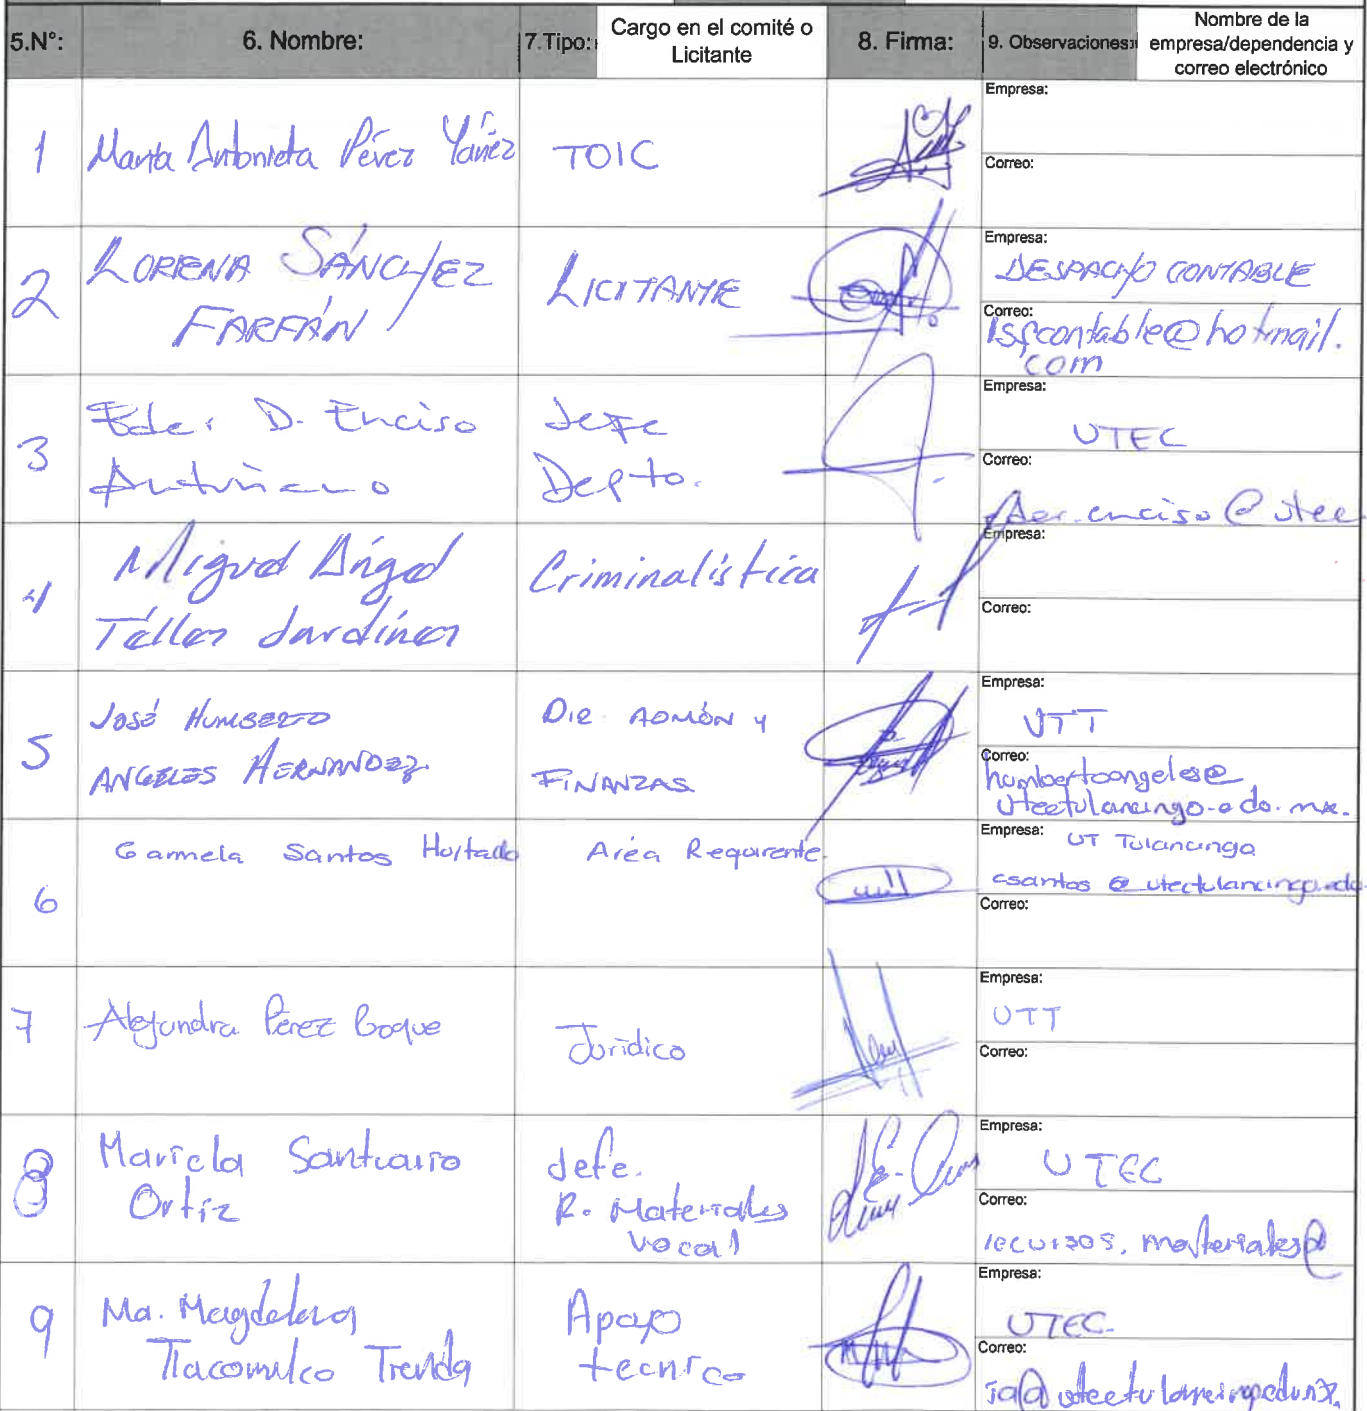 5.N°: 6. Nombre: 7.Tipo: Cargo en el comité o Licitante 8. Firma: 9. Observaciones: Nombre de la empresa/dependencia y correo electrónico
1 Maria Antonieta Pérez Yáñez TOIC
Empresa:
Correo:
2 LORENA SÁNCHEZ LICITANTE
FARFÁN
Empresa: DESPACHO CONTABLE
Correo: lsfcontable@hotmail.
com
3 Eder D. Enciso Jefe
Depto.
Empresa: UTEC
Correo: eder.enciso@utec
4 Miguel Ángel Criminalística
Téllez Jardínez
Empresa:
Correo:
5 José HUMBERTO DIR. ADMÓN Y
ANGELES HERNANDEZ FINANZAS
Empresa: UTT
Correo: humbertoangeles@
utectulancingo.edo.mx.
6 Carmela Santos Hurtado Área Requirente.
Empresa: UT Tulancingo
csantos@utectulancingo.edu
Correo:
7 Alejandra Pérez Jurídico
Empresa: UTT
Correo:
8 Maricla Santuario Jefe.
Ortíz R. Materiales
Vocal
Empresa: UTEC
Correo: recursos.materiales@
9 Ma. Magdalena Apoyo
Tlacomulco tecnico
Empresa: UTEC.
Correo: